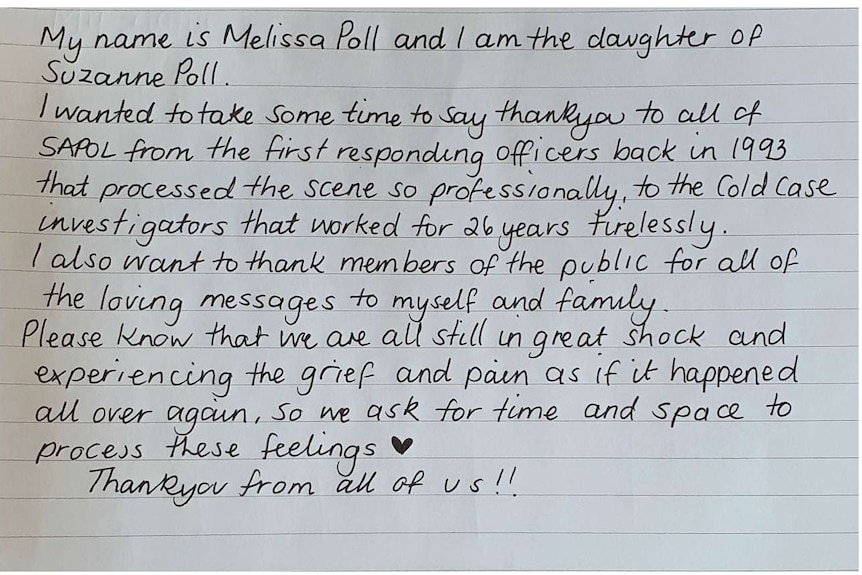 My name is Melissa Poll and I am the daughter of
Suzanne Poll.
I wanted to take some time to say thankyou to all of
SAPOL from the first responding officers back in 1993
that processed the scene so professionally, to the Cold Case
investigators that worked for 26 years tirelessly.
I also want to thank members of the public for all of
the loving messages to myself and family.
Please know that we are all still in great shock and
experiencing the grief and pain as if it happened
all over again, so we ask for time and space to
process these feelings ♥
Thankyou from all of us!!